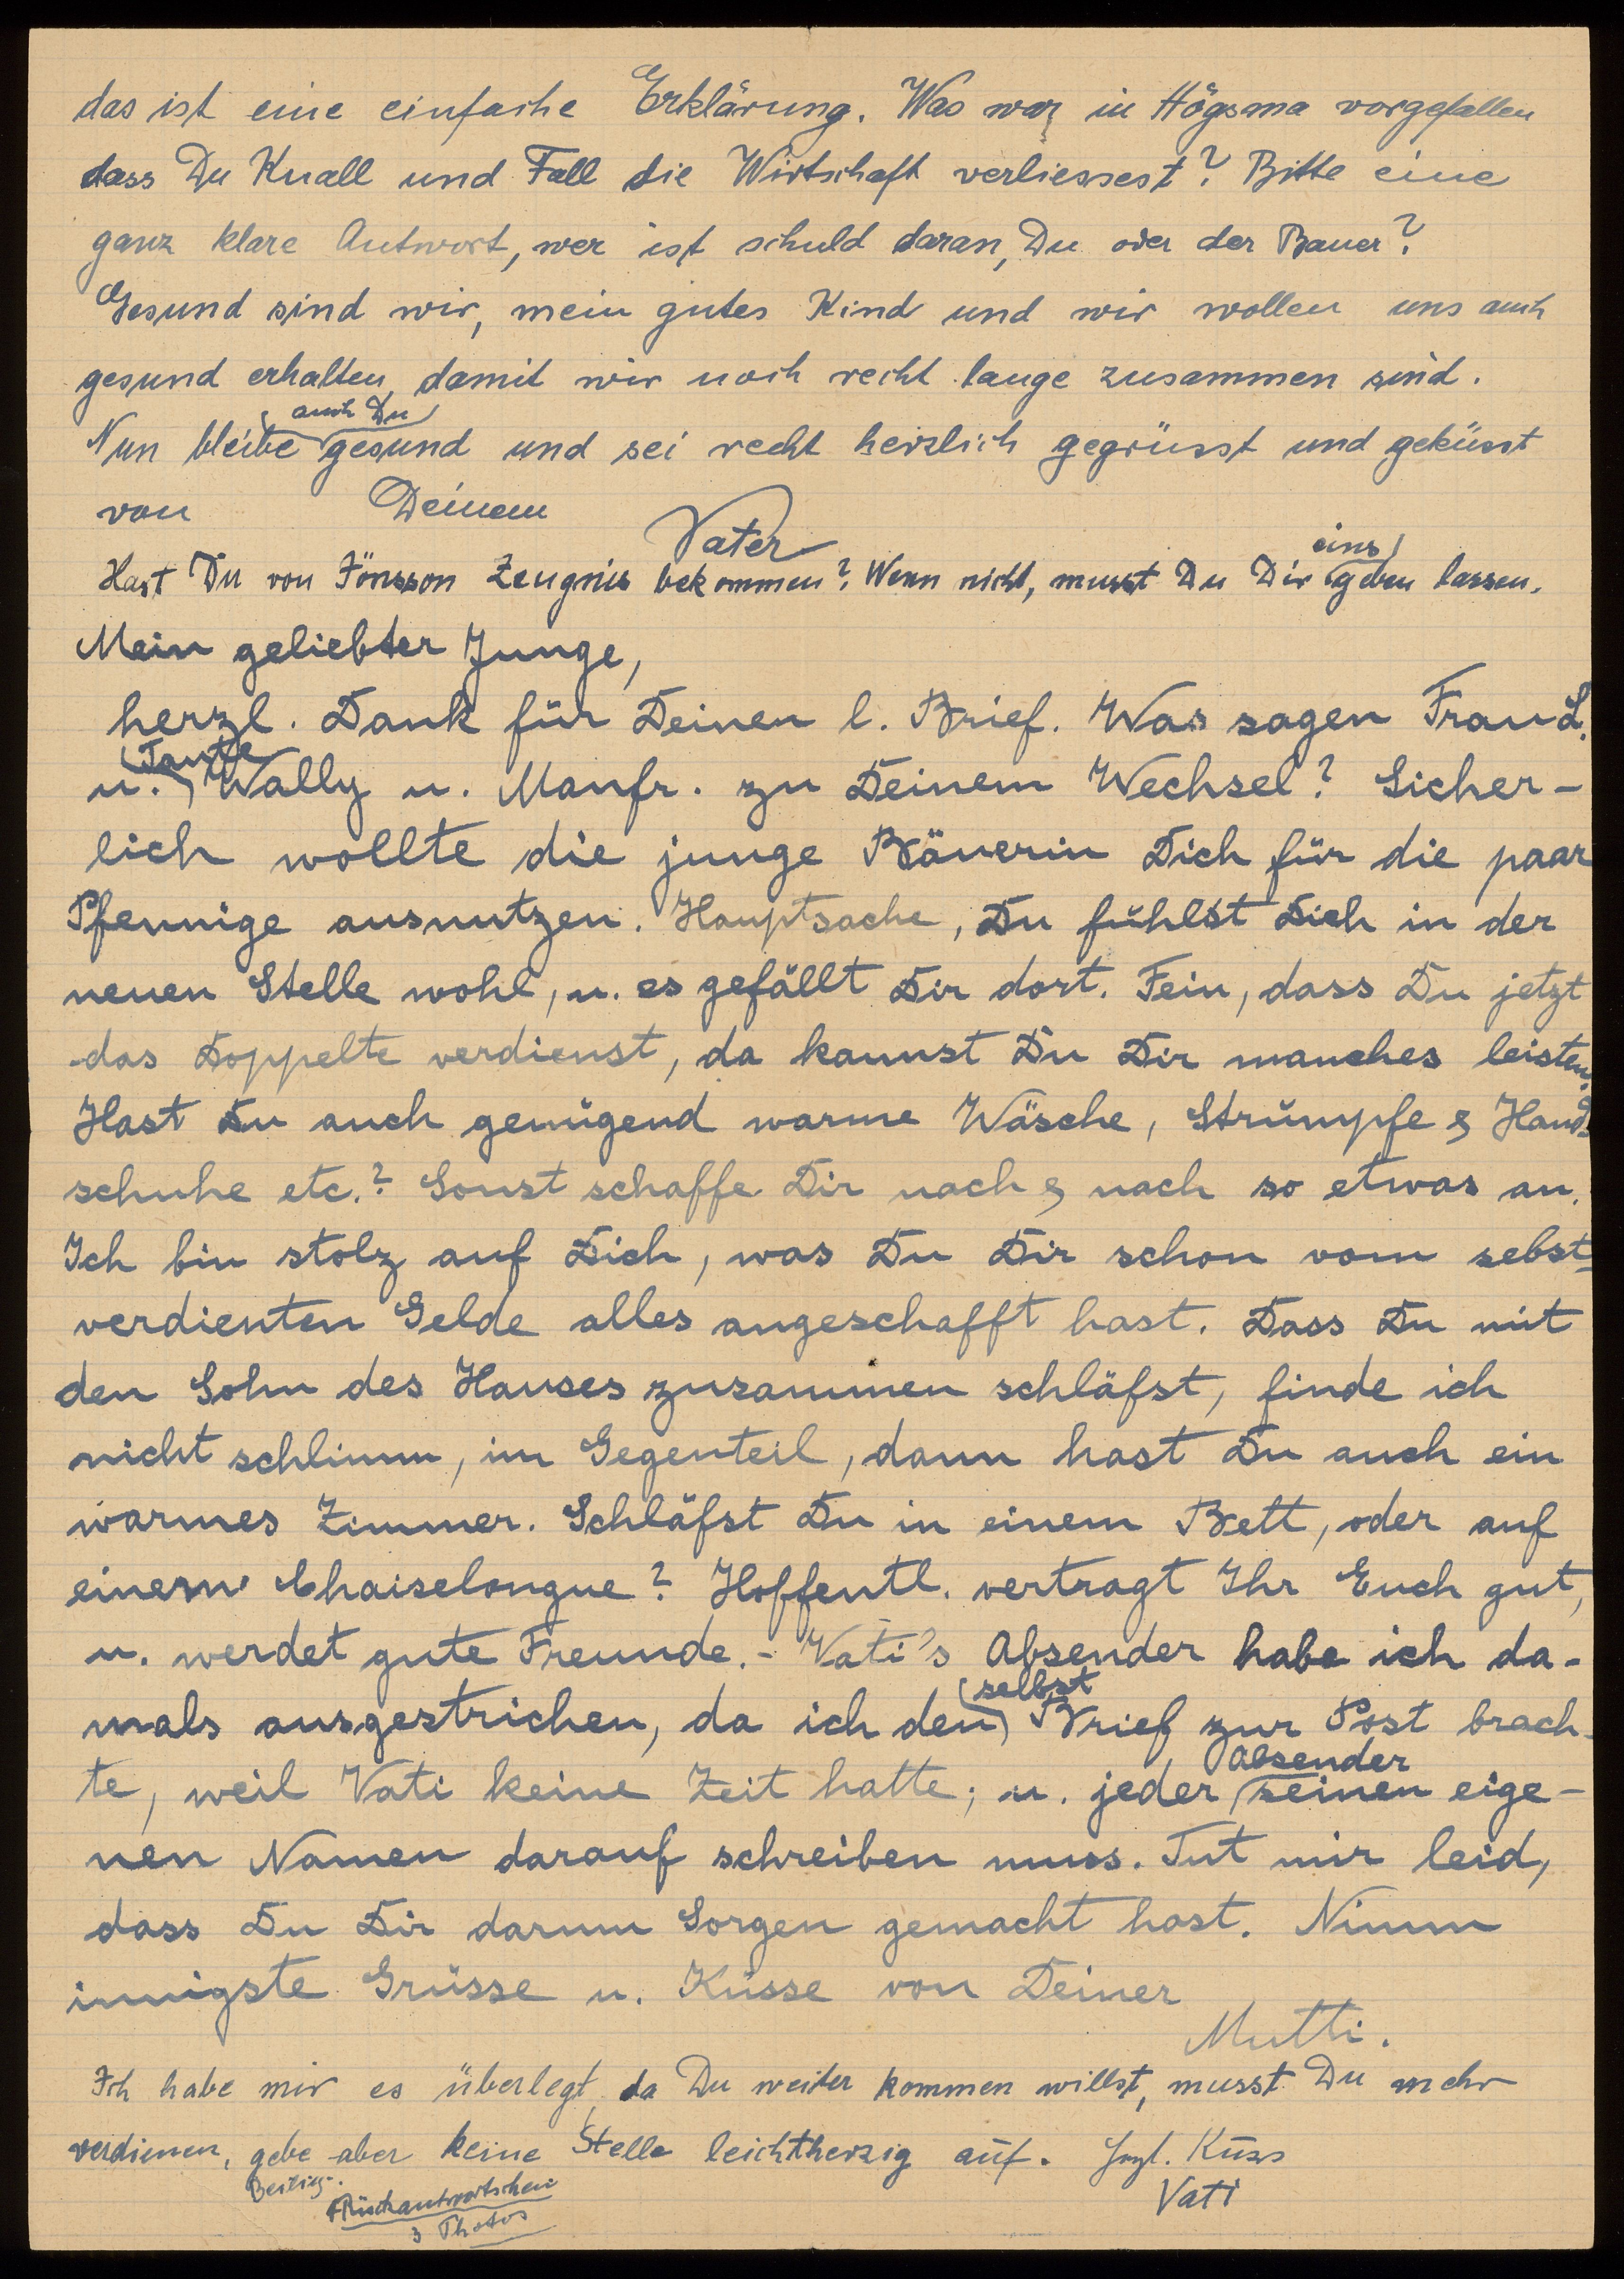 das ist eine einfache Erklärung. Was war in Högsma vorgefallen
dass Du Knall und Fall die Wirtschaft verliessest? Bitte eine
ganz klare Antwort, wer ist schuld daran, Du oder der Bauer?
Gesund sind wir, mein gutes Kind und wir wollen uns auch
gesund erhalten, damit wir noch recht lange zusammen sind.
Nun bleibe auch Du gesund und sei recht herzlich gegrüsst und geküsst
von Deinem
Vater
Hast Du von Jönsson Zeugnis bekommen? Wenn nicht, musst Du Dir eins geben lassen.
Mein geliebter Junge,
herzl. Dank für Deinen l. Brief. Was sagen Frau L.
u. Tante Wally u. Manfr. zu Deinem Wechsel? Sicher-
lich wollte die junge Bäuerin Dich für die paar
Pfennige ausnutzen. Hauptsache, Du fühlst Dich in der
neuen Stelle wohl, u. es gefällt Dir dort. Fein, dass Du jetzt
das Doppelte verdienst, da kannst Du Dir manches leisten.
Hast Du auch genügend warme Wäsche, Strümpfe & Hand-
schuhe etc.? Sonst schaffe Dir nach & nach so etwas an.
Ich bin stolz auf Dich, was Du Dir schon vom sebst-
verdienten Gelde alles angeschafft hast. Dass Du mit
den Sohn des Hauses zusammen schläfst, finde ich
nicht schlimm, im Gegenteil, dann hast Du auch ein
warmes Zimmer. Schläfst Du in einem Bett, oder auf
einem Chaiselongue? Hoffentl. vertragt Ihr Euch gut,
u. werdet gute Freunde.- Vati's Absender habe ich da-
mals ausgestrichen, da ich den selbst Brief zur Post brach-
te, weil Vati keine Zeit hatte; u. jeder Absender seinen eige-
nen Namen darauf schreiben muss. Tut mir leid,
dass Du Dir darum Sorgen gemacht hast. Nimm
innigste Grüsse u. Küsse von Deiner
Mutti.
Ich habe mir es überlegt, da Du weiter kommen willst, musst Du mehr
verdienen, gebe aber keine Stelle leichtherzig auf. Hrzl. Kuss
Vati
Rückantwortschein
3 Photos